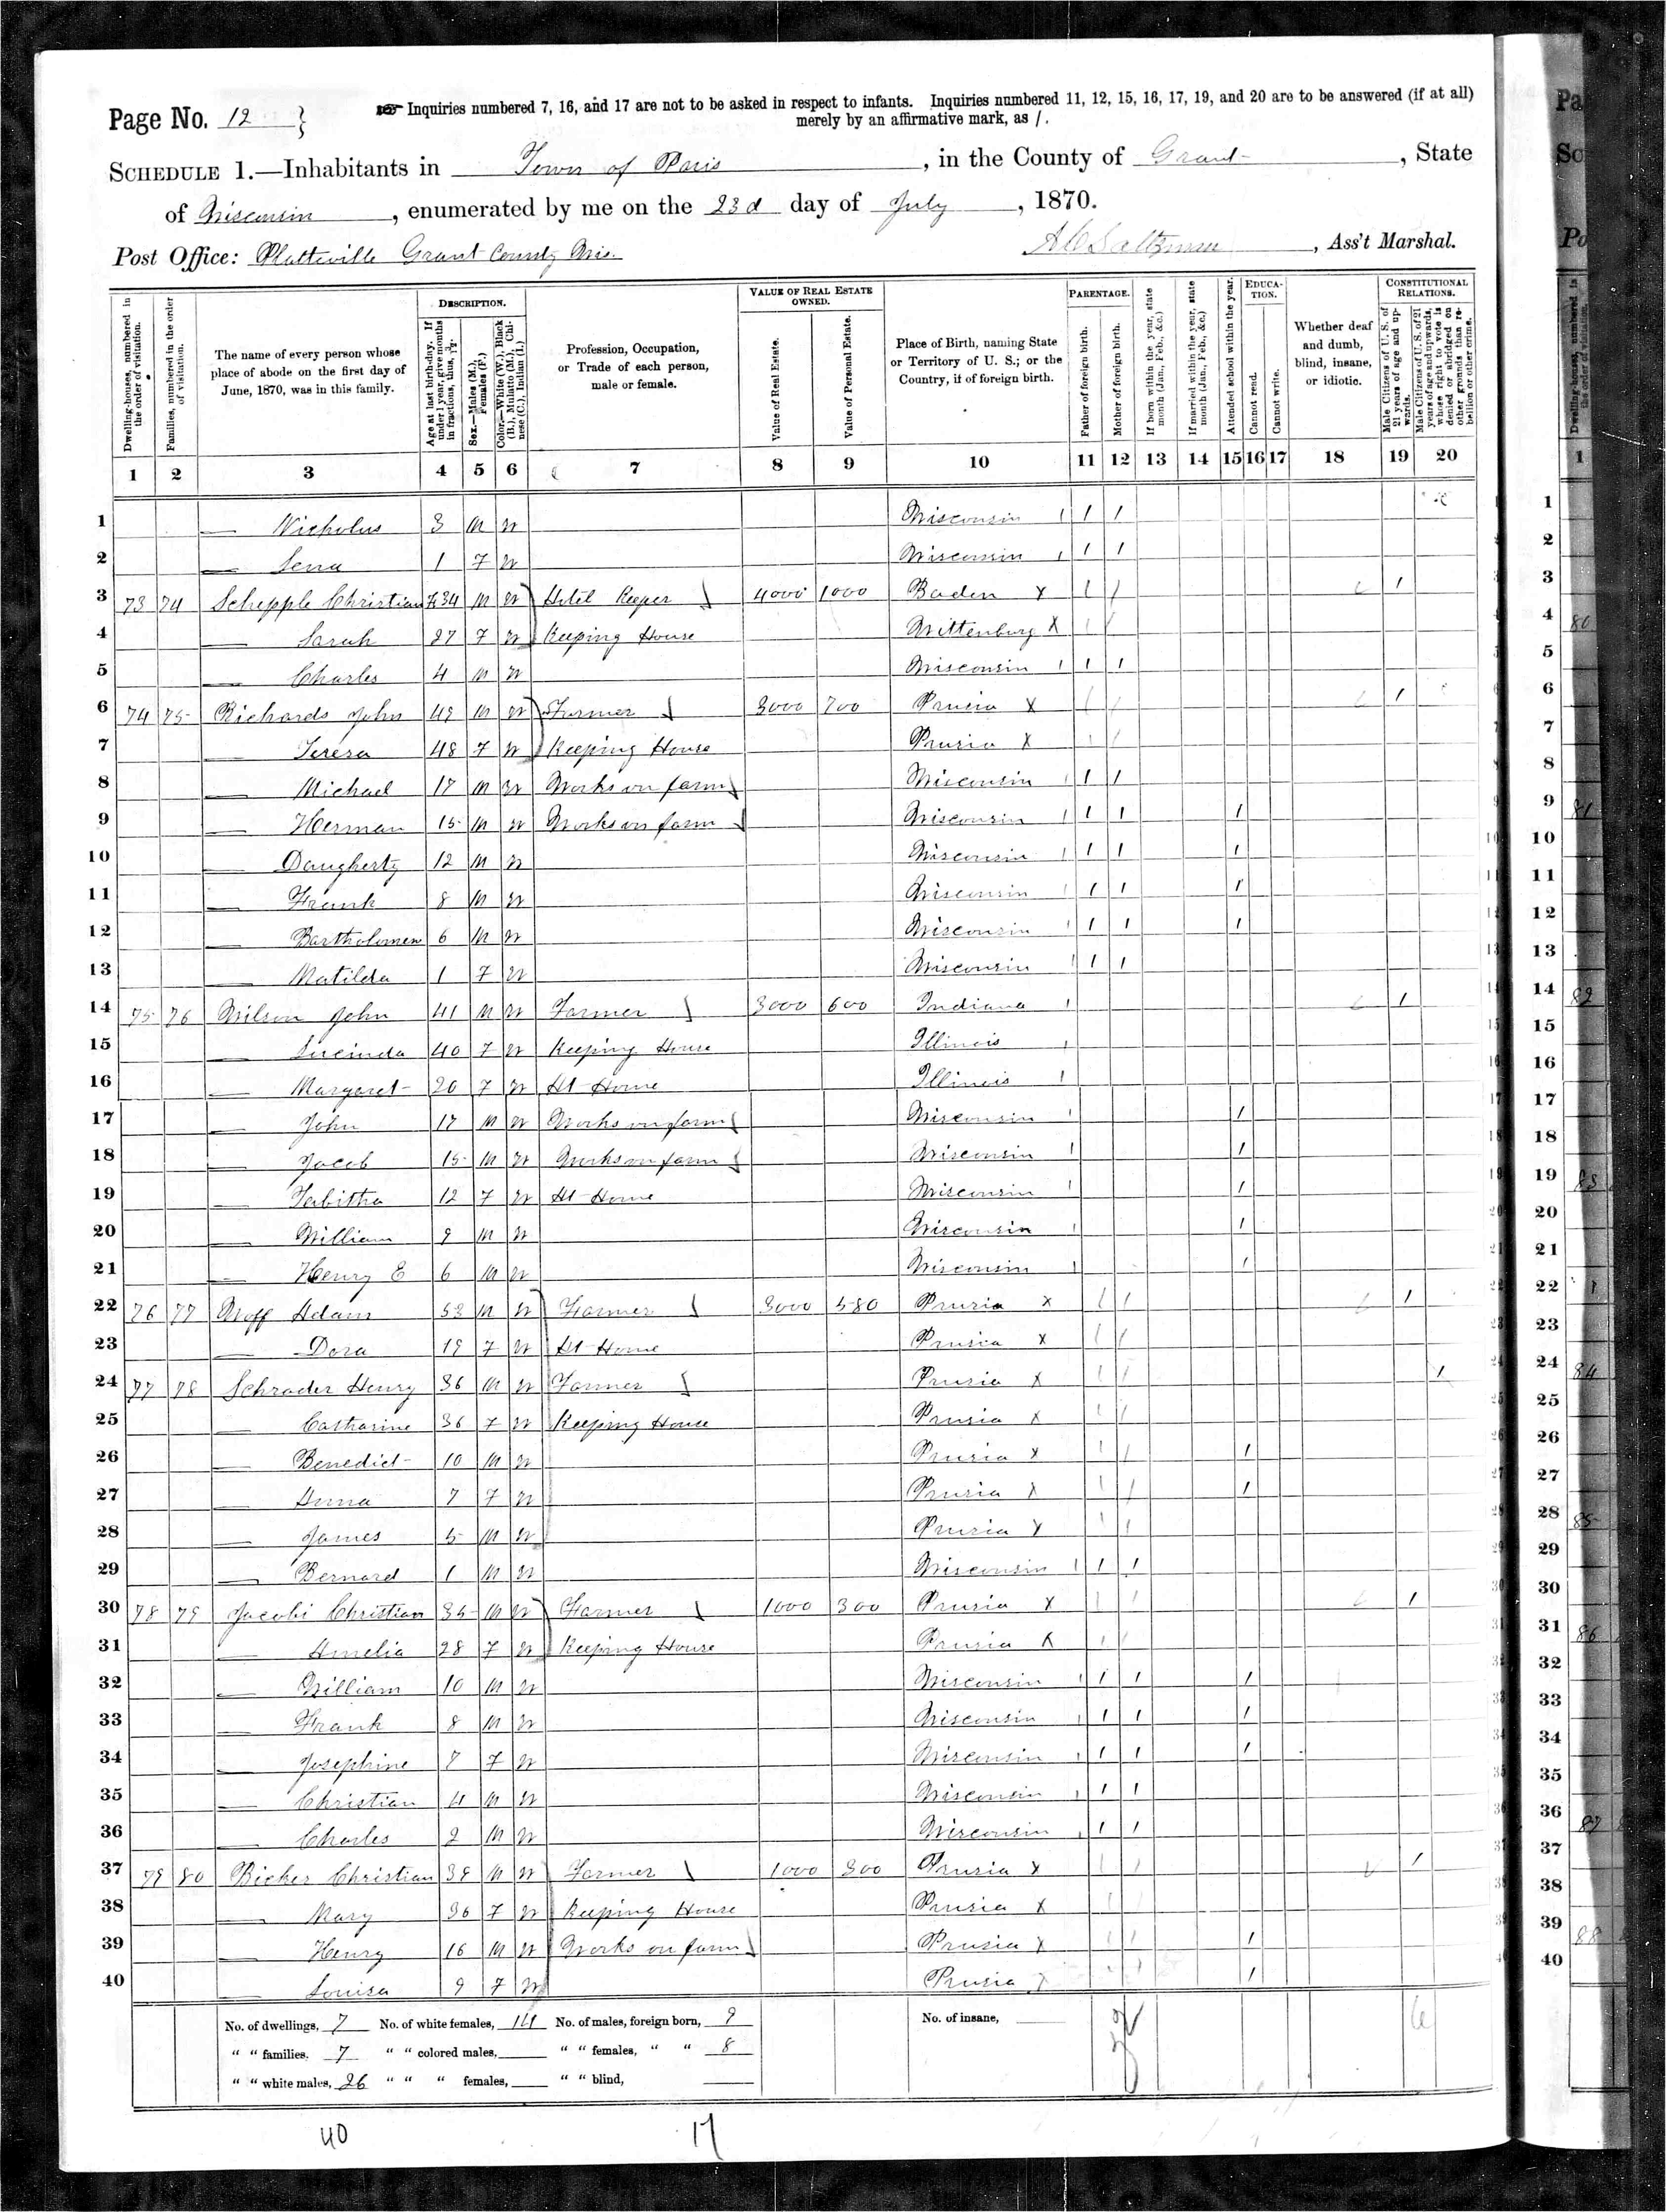 Page No. 12 }
Inquiries numbered 7, 16, and 17 are not to be asked in respect to infants. Inquiries numbered 11, 12, 15, 16, 17, 19, and 20 are to be answered (if at all)
merely by an affirmative mark, as /.
SCHEDULE 1.—Inhabitants in Town of Paris, in the County of Grant, State
of Wisconsin, enumerated by me on the 23d day of July, 1870.
Post Office: Platteville Grant County Wis. , Ass't Marshal.
Dwelling-houses, numbered in the order of visitation.
Families, numbered in the order of visitation.
The name of every person whose place of abode on the first day of June, 1870, was in this family.
DESCRIPTION.
Age at last birth-day. If under 1 year, give months in fractions, thus, 3/12.
Sex.—Males (M.), Females (F.)
Color.—White (W.), Black (B.), Mulatto (M.), Chinese (C.), Indian (I.)
Profession, Occupation, or Trade of each person, male or female.
VALUE OF REAL ESTATE OWNED.
Value of Real Estate.
Value of Personal Estate.
Place of Birth, naming State or Territory of U. S.; or the Country, if of foreign birth.
PARENTAGE.
Father of foreign birth.
Mother of foreign birth.
If born within the year, state month (Jan., Feb., &c.)
If married within the year, state month (Jan., Feb., &c.)
Attended school within the year.
EDUCATION.
Cannot read.
Cannot write.
Whether deaf and dumb, blind, insane, or idiotic.
CONSTITUTIONAL RELATIONS.
Male Citizens of U. S. of 21 years of age and upwards.
Male Citizens of U. S. of 21 years of age and upwards, whose right to vote is denied or abridged on other grounds than rebellion or other crime.
1 2 3 4 5 6 7 8 9 10 11 12 13 14 15 16 17 18 19 20
1 — Nicholus 3 M W Wisconsin / /
2 — Lena 1 F W Wisconsin / /
3 73 74 Schepple Christian 34 M W Hotel Keeper 4000 1000 Baden X / / /
4 — Sarah 27 F W Keeping House Wittenburg X / /
5 — Charles 4 M W Wisconsin / /
6 74 75 Richards John 49 M W Farmer 3000 700 Prusia X / / /
7 — Teresa 48 F W Keeping House Prusia X / /
8 — Michael 17 M W Works on farm Wisconsin / /
9 — Herman 15 M W Works on farm Wisconsin / / /
10 — Daugherty 12 M W Wisconsin / / /
11 — Frank 8 M W Wisconsin / / /
12 — Bartholomew 6 M W Wisconsin / / /
13 — Matilda 1 F W Wisconsin / /
14 75 76 Wilson John 41 M W Farmer 3000 600 Indiana /
15 — Lucinda 40 F W Keeping House Illinois
16 — Margaret 20 F W At Home Illinois
17 — John 17 M W Works on farm Wisconsin /
18 — Jacob 15 M W Works on farm Wisconsin /
19 — Tabitha 12 F W At Home Wisconsin /
20 — William 9 M W Wisconsin /
21 — Henry E 6 M W Wisconsin /
22 76 77 Woff Adam 53 M W Farmer 3000 580 Prusia X / / /
23 — Dora 19 F W At Home Prusia X / /
24 77 78 Schrader Henry 36 M W Farmer Prusia X / / /
25 — Catharine 36 F W Keeping House Prusia X / /
26 — Benedict 10 M W Prusia X / / /
27 — Anna 7 F W Prusia X / / /
28 — James 5 M W Prusia X / /
29 — Bernard 1 M W Wisconsin / /
30 78 79 Jacobi Christian 35 M W Farmer 1000 300 Prusia X / / /
31 — Amelia 28 F W Keeping House Prusia X / /
32 — William 10 M W Wisconsin / / /
33 — Frank 8 M W Wisconsin / / /
34 — Josephine 7 F W Wisconsin / / /
35 — Christian 4 M W Wisconsin / /
36 — Charles 2 M W Wisconsin / /
37 79 80 Bicker Christian 38 M W Farmer 1000 300 Prusia X / / /
38 — Mary 36 F W Keeping House Prusia X / /
39 — Henry 16 M W Works on farm Prusia X / / /
40 — Louisa 9 F W Prusia X / / /
No. of dwellings, 7 No. of white females, 14 No. of males, foreign born, 9 No. of insane,
" " families, 7 " " colored males, " " females, " " 8
" " white males, 26 " " " females, " " blind,
6
40 17